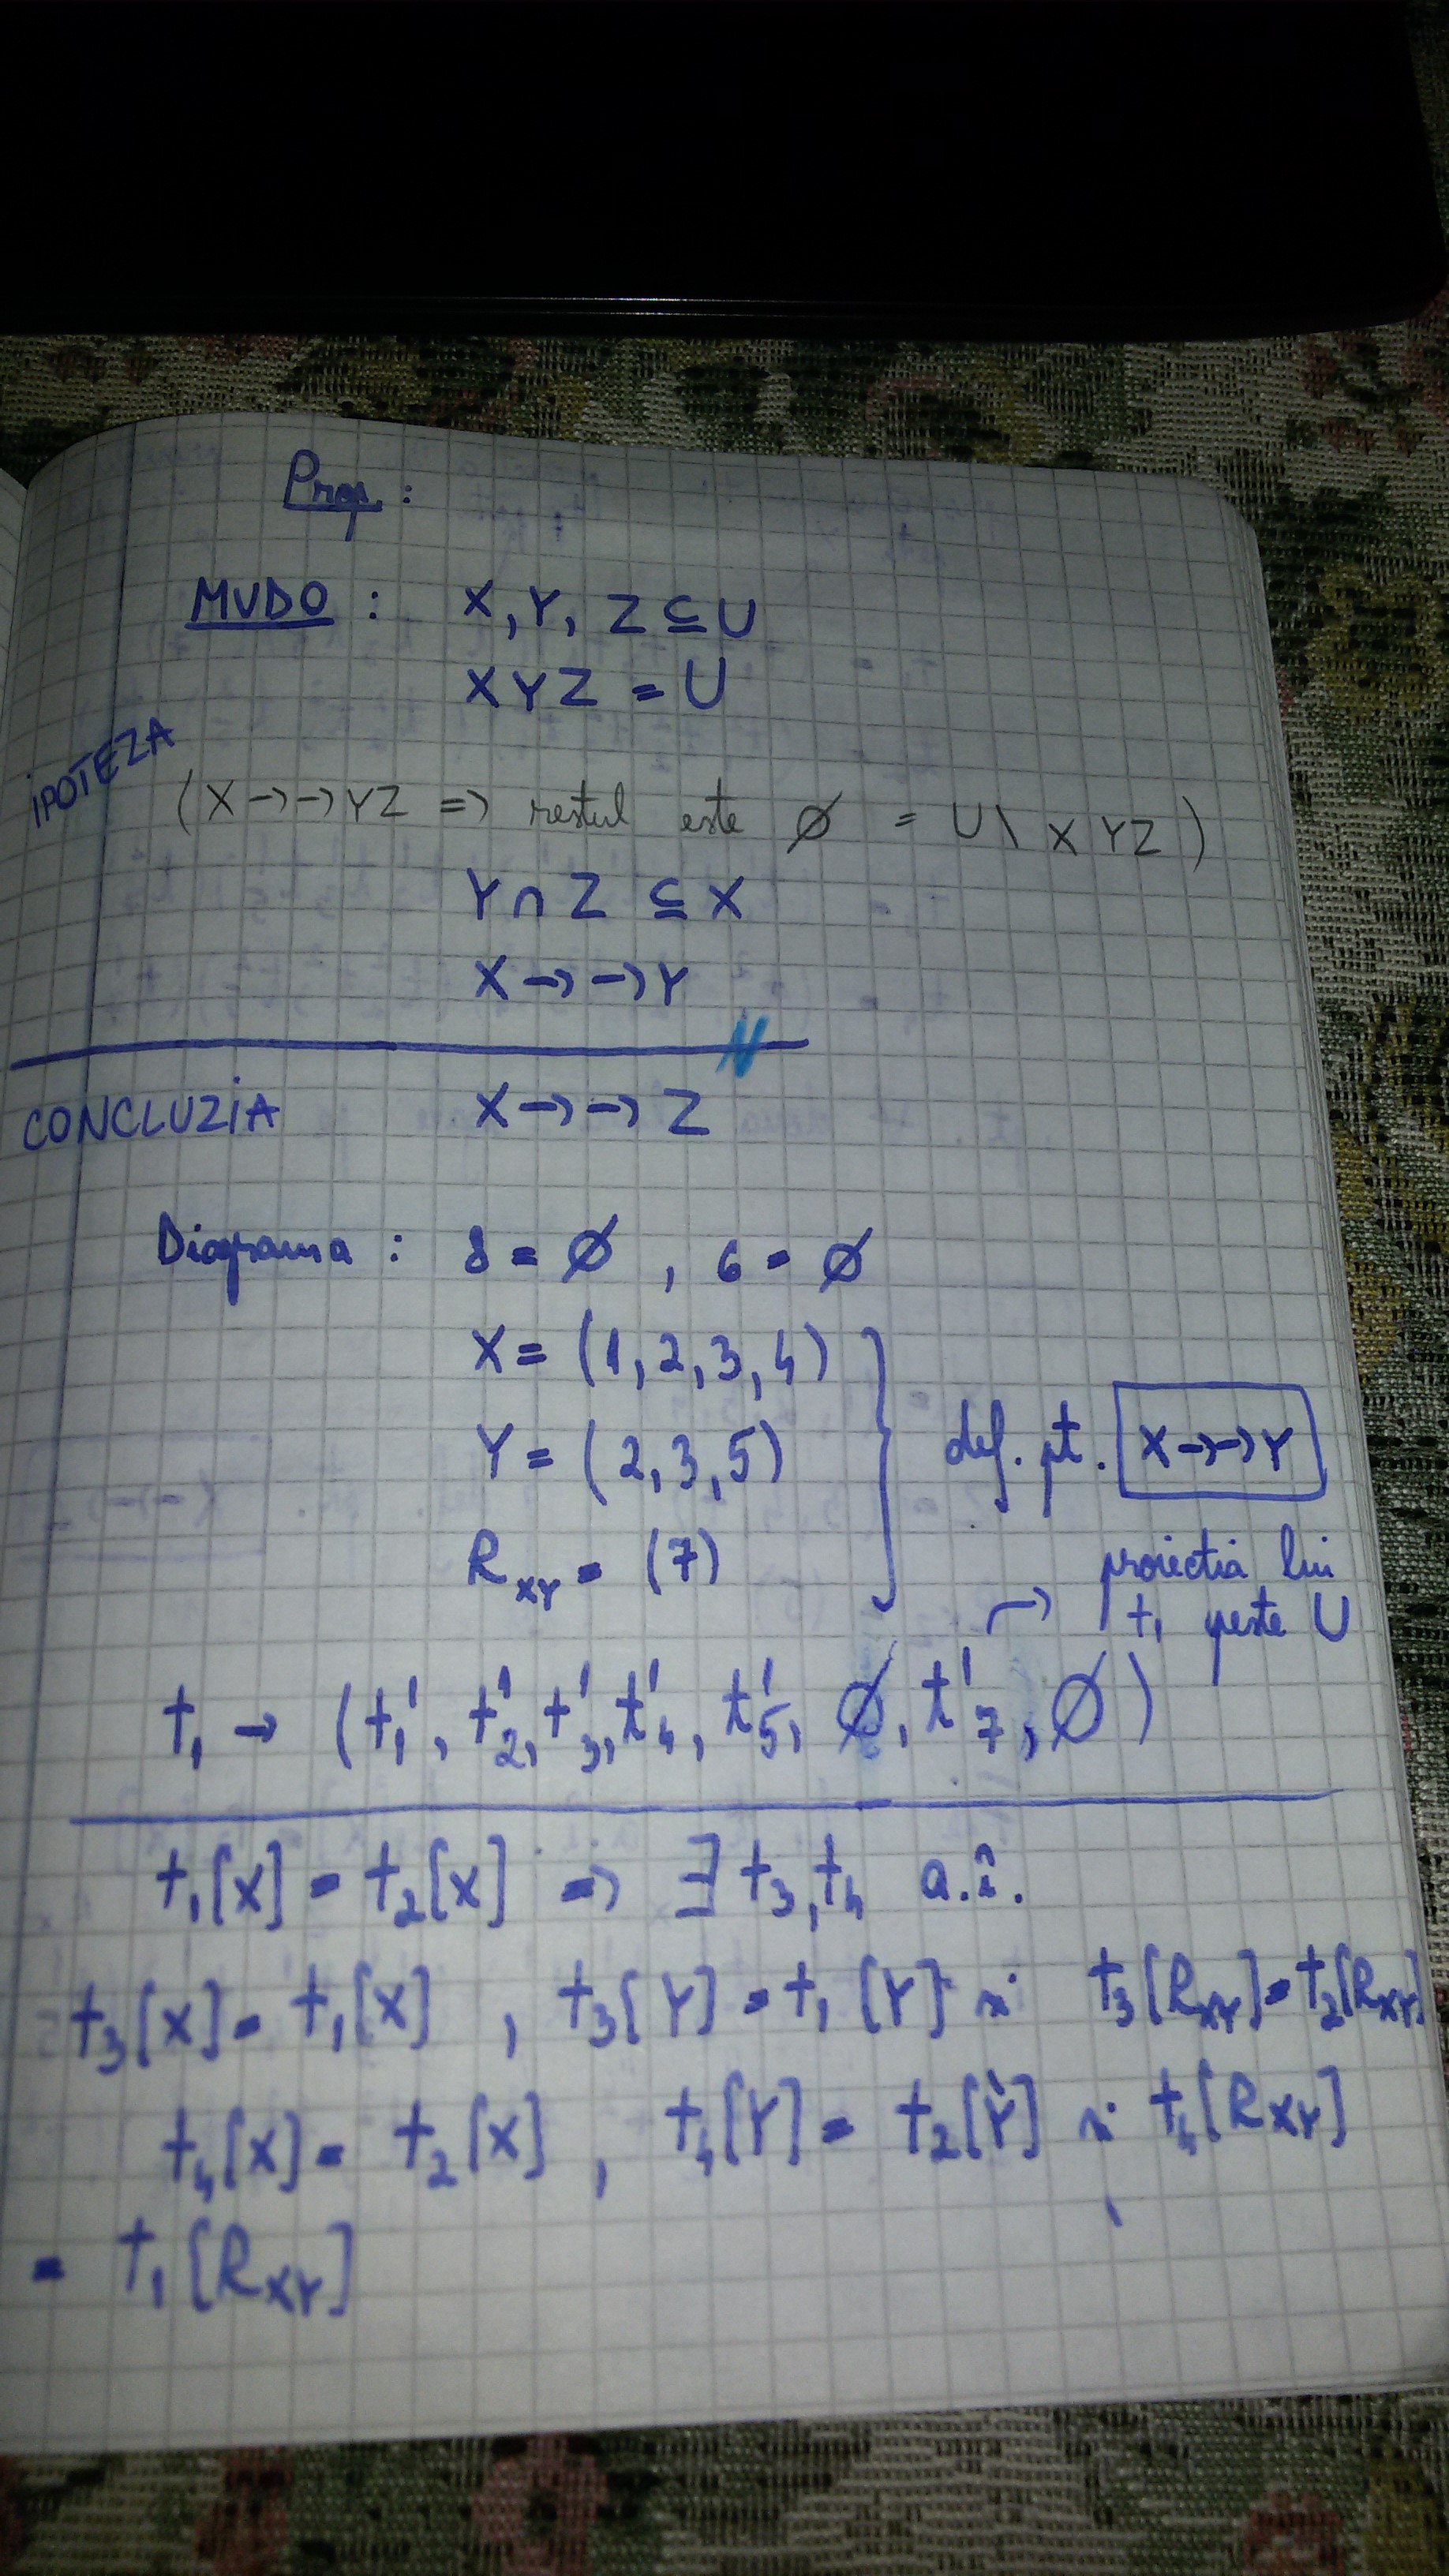 Prop. :
MVD0 : X, Y, Z ⊆ U
XYZ = U
IPOTEZA
(X →→ YZ => restul este ∅ = U \ XYZ)
Y ∩ Z ⊆ X
X →→ Y
CONCLUZIA X →→ Z
Diagrama : 8 = ∅ , 6 = ∅
X = (1, 2, 3, 4)
Y = (2, 3, 5)
def. pt. X →→ Y
R_XY = (7)
→ proiectia lui t₁ peste U
t₁ → (t₁', t₂', t₃', t₄', t₅', ∅, t₇', ∅)
t₁[X] = t₂[X] => ∃ t₃, t₄ a.î.
t₃[X] = t₁[X] , t₃[Y] = t₁[Y] si t₃[R_XY] = t₂[R_XY]
t₄[X] = t₂[X] , t₄[Y] = t₂[Y] si t₄[R_XY]
= t₁[R_XY]